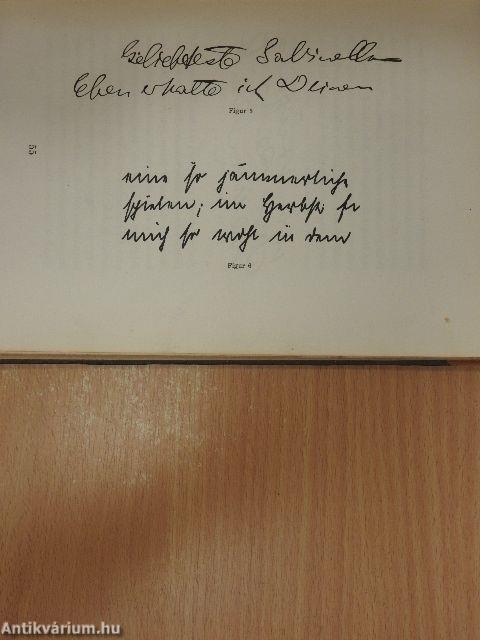 Geliebteste Sabinella
Eben erhalte ich Deinen
Figur 5
55
eine so jämmerliche
spielen; im Herbst
mich so wohl in dem
Figur 6
Antikvárium.hu